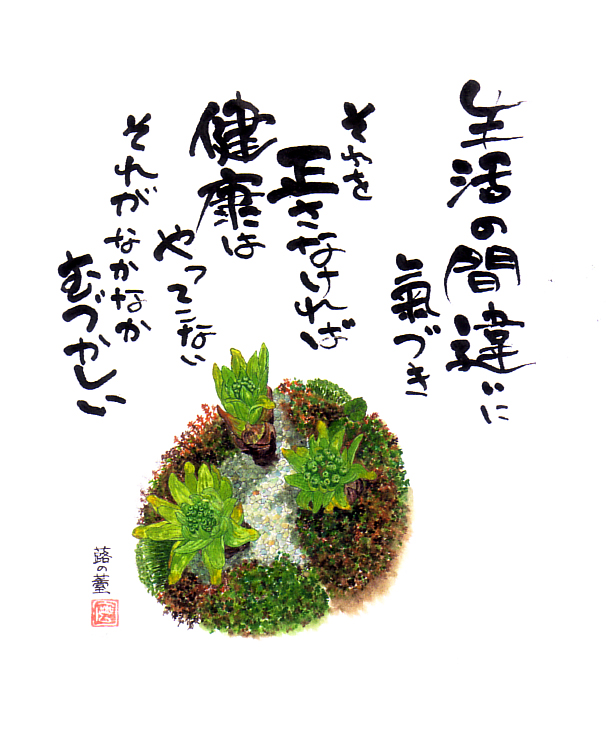 生活の間違いに
氣づき
それを
正さなければ
健康は
やってこない
それがなかなか
むづかしい
蕗の薹